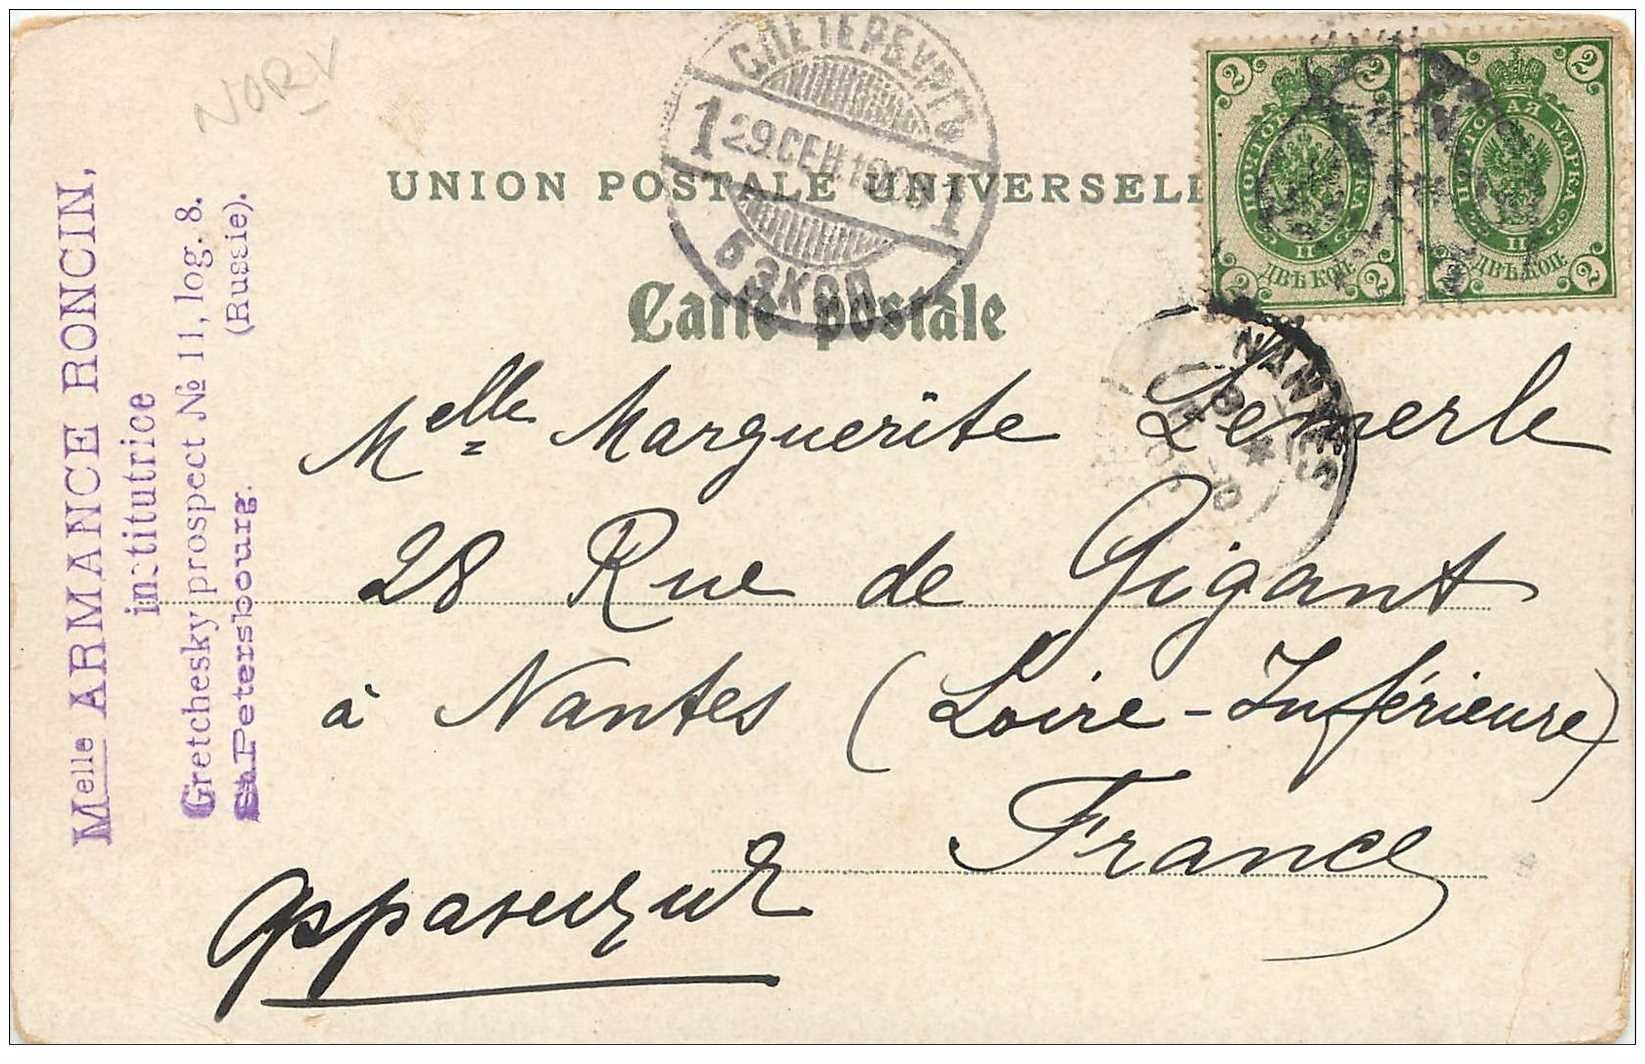 NORV
UNION POSTALE UNIVERSELL
Carte postale
С.ПЕТЕРБУРГЪ
1 29.СЕН.190 1
5 ЭКСП
2 2
ПОЧТОВАЯ МАРКА
II
ДВѢ КОП.
2 2
2 2
ПОЧТОВАЯ МАРКА
II
ДВѢ КОП.
2 2
NANTES
Melle ARMANCE RONCIN,
institutrice
Gretchesky prospect № 11, log. 8.
St. Petersbourg. (Russie).
Melle Marguerite Lemerle
28 Rue de Gigant
à Nantes (Loire-Inférieure)
France